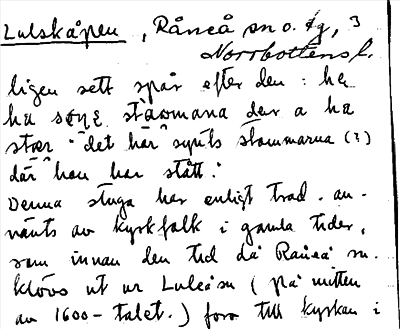 Lulskåpen, Råneå sn o. tg, 3
Norrbottens l.
ligen sett spår efter den : he
ha stær "det här synts stommarna (?)
där han har stått."
Denna stuga har enligt trad. an-
vänts av kyrkfolk i gamla tider,
som innan den tid då Råneå sn.
klövs ut ur Luleå sn (på mitten
av 1600-talet.) foro till kyrkan i